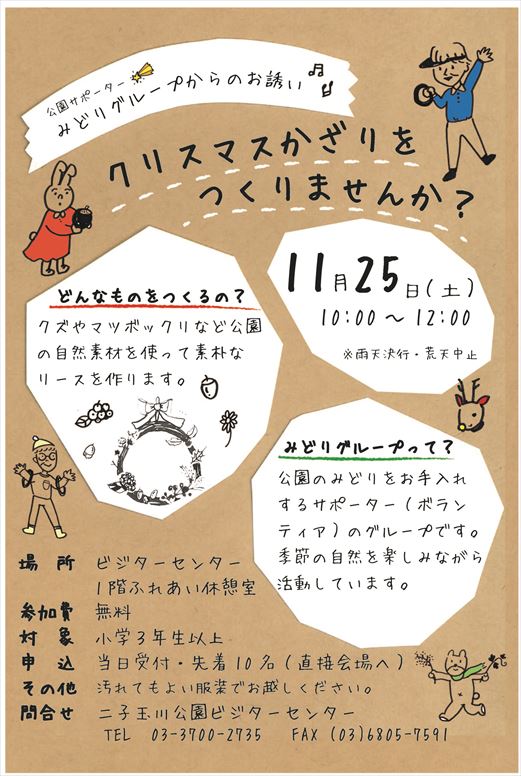 公園サポーター
みどりグループからのお誘い
クリスマスかざりを
つくりませんか？
11月25日(土)
10:00～12:00
※雨天決行・荒天中止
どんなものをつくるの？
クズやマツボックリなど公園
の自然素材を使って素朴な
リースを作ります。
みどりグループって？
公園のみどりをお手入れ
するサポーター（ボラン
ティア）のグループです。
季節の自然を楽しみながら
活動しています。
場　所　ビジターセンター
1階ふれあい休憩室
参加費　無料
対　象　小学3年生以上
申　込　当日受付・先着10名(直接会場へ)
その他　汚れてもよい服装でお越しください。
問合せ　二子玉川公園ビジターセンター
TEL　03-3700-2735　FAX (03)6805-7591